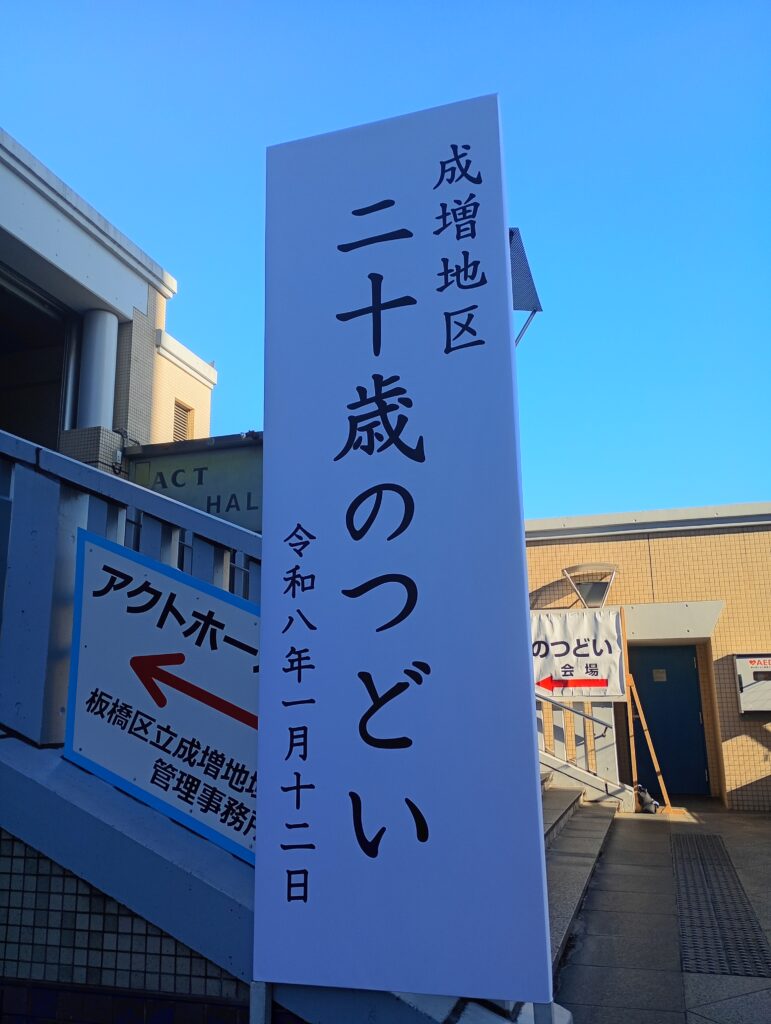 成増地区
二十歳のつどい
令和八年一月十二日
ACT
HAL
アクトホー
板橋区立成増地域
管理事務所
のつどい
会場
AED